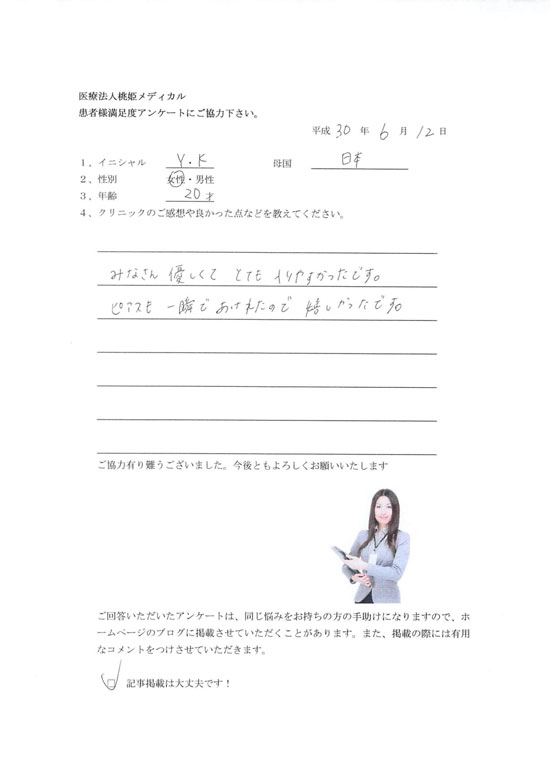 医療法人桃姫メディカル
患者様満足度アンケートにご協力下さい。
平成 30 年 6 月 12 日
1、イニシャル Y.K 母国 日本
2、性別 女性・男性
3、年齢 20才
4、クリニックのご感想や良かった点などを教えてください。
みなさん 優しくて とても 入りやすかったです。
ピアスも 一瞬で あけれたので 嬉しかったです。
ご協力有り難うございました。今後ともよろしくお願いいたします
ご回答いただいたアンケートは、同じ悩みをお持ちの方の手助けになりますので、ホ
ームページのブログに掲載させていただくことがあります。また、掲載の際には有用
なコメントをつけさせていただきます。
□ 記事掲載は大丈夫です！